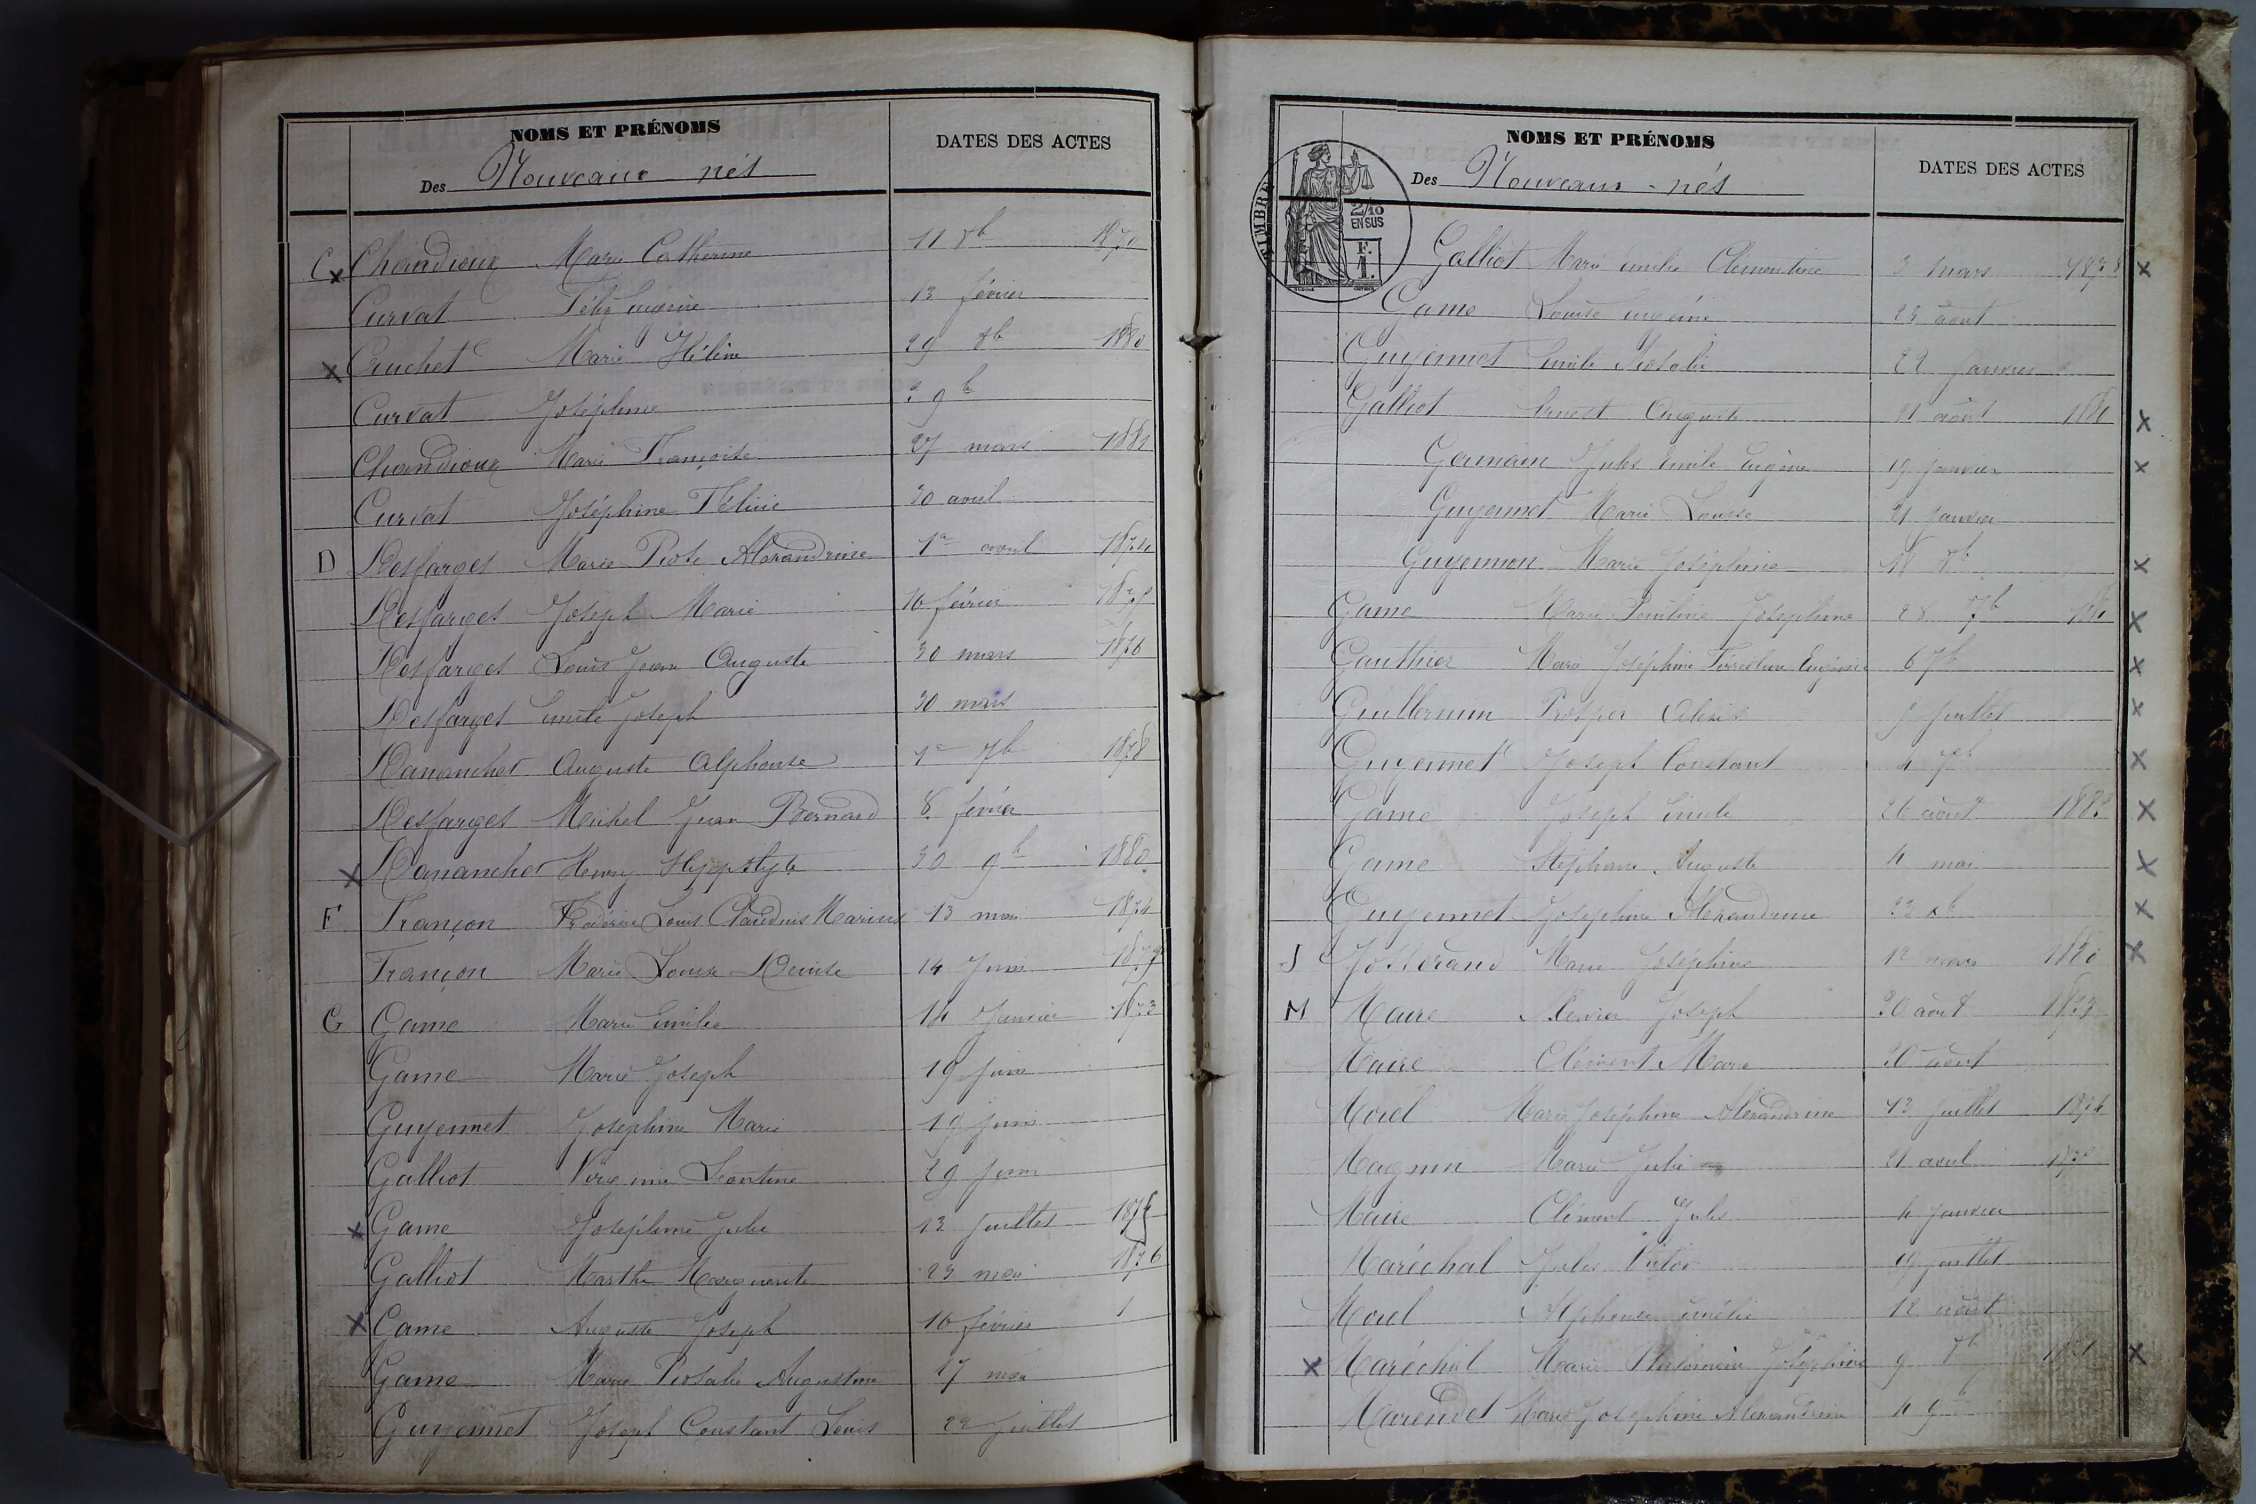 NOMS ET PRÉNOMS
DATES DES ACTES
Des Nouveaux-nés
C Chandioux Marie Catherine 11 8b
Curvat Félix 13 février
Cruchet Marie Hélène 29 8b 1880
Curvat Joséphine 9b
Chandioux Marie Françoise 27 mars 1881
Curvat Joséphine 20 avril
D Desfarges Marie Rose Alexandrine 1er avril 1874
Desfarges Joseph Marie 16 février
Desfarges Louis Jean Auguste 30 mars 1876
Desfarges Emile Joseph 30 mars
Dananchet Auguste Alphonse 1er 7b 1878
Desfarges Michel Jean Bernard 8 février
Dananchet Henry Hyppolyte 30 9b 1880
F Françon Louis Claudius Marius 13 mai 1874
Françon Marie Louise Denise 14 Juin
G Game Marie Emilie 14 Janvier 1873
Game Marie Joseph 19 juin
Guyennet Joséphine Marie 19 juin
Galliot Virginie Léontine 29 juin
Game Joséphine Julie 13 juillet
Galliot Marthe Marguerite 23 mai 1876
Game Auguste Joseph 16 février
Game Marie Rosalie Augustine 17 mai
Guyennet Joseph Constant Louis 22 juillet
NOMS ET PRÉNOMS
DATES DES ACTES
TIMBRE
2/10
EN SUS
F.
1.
Des Nouveaux-nés
Galliot Marie Emilie Clementine 3 mars 1878
Game Louise 23 août
Guyennet Emile Rosalie 22 Janvier
Galliot Ernest Auguste 21 août
Germain Jules Emile Eugène 19 Janvier
Guyennet Marie Louise 21 Janvier
Guyennon Marie Joséphine 18 8b
Game Marie Pauline Joséphine 28 7b
Gauthier Marie Joséphine Eugénie 6 7b
Guillermin Prosper Alexis juillet
Guyennet Joseph Constant 4 7b
Game Joseph Emile 26 août
Game Stéphanie Auguste 4 mai
Guyennet Joséphine Alexandrine
J Josserand Marie Joséphine 12 mars 1880
M Maire Joseph 30 août 1873
Maire Clément Marie 30 août
Morel Marie Joséphine Alexandrine 13 juillet 1874
Magnin Marie Julie 21 avril
Maire Clément Jules 4 janvier
Maréchal Jules Victor 19 juillet
Morel Alphonse 12 août
Maréchal Marie Joséphine 9 7b
Marendet Marie Joséphine Alexandrine 4 9b